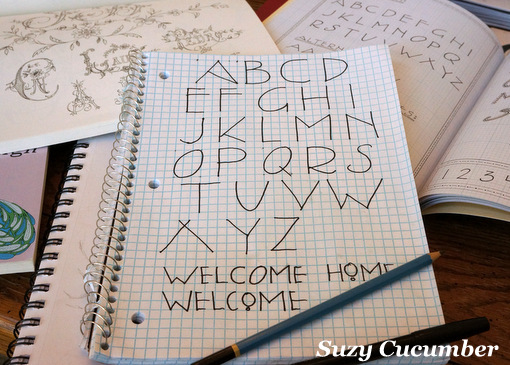 ABCD
EFGHI
JKLMN
OPQRS
TUVW
XYZ
WELCOME HOME
WELCOME
ABCDEFGHI
JKLMNOPQ
RSTUVWXYZ
1234
Suzy Cucumber